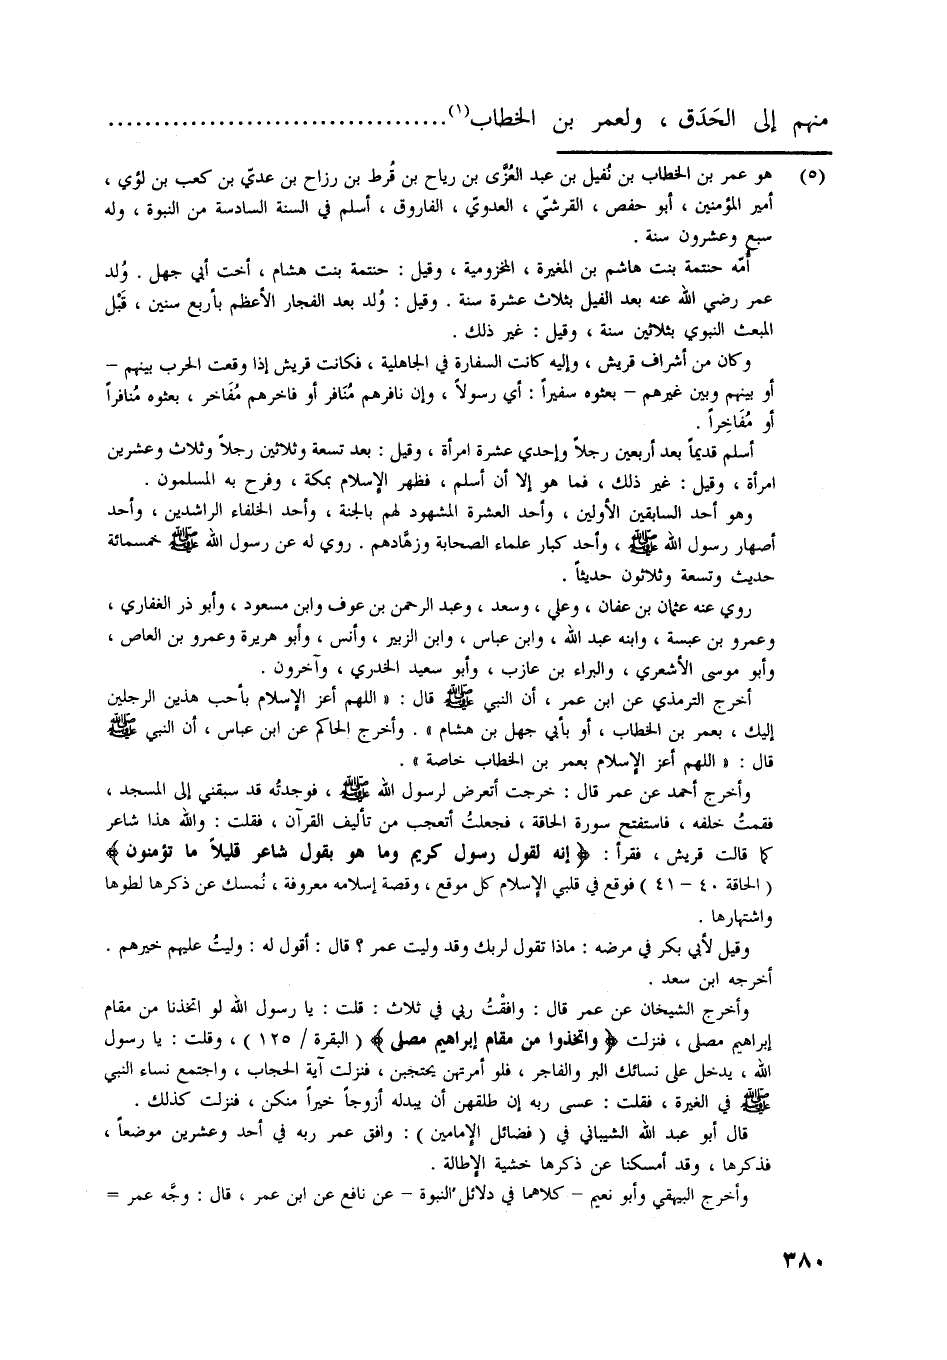 منهم إلى الحَدَق ، ولعمر بن الخطاب(١)....................................
(٥) هو عمر بن الخطاب بن نُفيل بن عبد العُزَّى بن رياح بن قُرط بن رزاح بن عديّ بن كعب بن لؤي ،
أمير المؤمنين ، أبو حفص ، القرشيّ ، العدويّ ، الفاروق ، أسلم في السنة السادسة من النبوة ، وله
سبع وعشرون سنة .
أُمّه حنتمة بنت هاشم بن المغيرة ، المخزومية ، وقيل : حنتمة بنت هشام ، أخت أبي جهل . وُلد
عمر رضي الله عنه بعد الفيل بثلاث عشرة سنة . وقيل : وُلد بعد الفجار الأعظم بأربع سنين ، قَبْل
المبعث النبوي بثلاثين سنة ، وقيل : غير ذلك .
وكان من أشراف قريش ، وإليه كانت السفارة في الجاهلية ، فكانت قريش إذا وقعت الحرب بينهم –
أو بينهم وبين غيرهم – بعثوه سفيراً : أي رسولاً ، وإن نافرهم مُنَافر أو فاخرهم مُفَاخر ، بعثوه مُنافراً
أو مُفَاخِراً .
أسلم قديماً بعد أربعين رجلاً وإحدي عشرة امرأة ، وقيل : بعد تسعة وثلاثين رجلاً وثلاث وعشرين
امرأة ، وقيل : غير ذلك ، فما هو إلا أن أسلم ، فظهر الإسلام بمكة ، وفرح به المسلمون .
وهو أحد السابقين الأولين ، وأحد العشرة المشهود لهم بالجنة ، وأحد الخلفاء الراشدين ، وأحد
أصهار رسول الله ﷺ ، وأحد كبار علماء الصحابة وزهَّادهم . روي له عن رسول الله ﷺ خمسمائة
حديث وتسعة وثلاثون حديثاً .
روي عنه عثمان بن عفان ، وعلي ، وسعد ، وعبد الرحمن بن عوف وابن مسعود ، وأبو ذر الغفاري ،
وعمرو بن عبسة ، وابنه عبد الله ، وابن عباس ، وابن الزبير ، وأنس ، وأبو هريرة وعمرو بن العاص ،
وأبو موسى الأشعري ، والبراء بن عازب ، وأبو سعيد الخدري ، وآخرون .
أخرج الترمذي عن ابن عمر ، أن النبي ﷺ قال : « اللهم أعز الإسلام بأحب هذين الرجلين
إليك ، بعمر بن الخطاب ، أو بأبي جهل بن هشام » . وأخرج الحاكم عن ابن عباس ، أن النبي ﷺ
قال : « اللهم أعز الإسلام بعمر بن الخطاب خاصة » .
وأخرج أحمد عن عمر قال : خرجت أتعرض لرسول الله ﷺ ، فوجدتُه قد سبقني إلى المسجد ،
فقمتُ خلفه ، فاستفتح سورة الحاقة ، فجعلتُ أتعجب من تأليف القرآن ، فقلت : والله هذا شاعر
كما قالت قريش ، فقرأ : ﴿ إنه لقول رسول كريم وما هو بقول شاعر قليلاً ما تؤمنون ﴾
( الحاقة ٤٠ – ٤١ ) فوقع في قلبي الإسلام كل موقع ، وقصة إسلامه معروفة ، نُمسك عن ذكرها لطولها
واشتهارها .
وقيل لأبي بكر في مرضه : ماذا تقول لربك وقد وليت عمر ؟ قال : أقول له : وليتُ عليهم خيرهم .
أخرجه ابن سعد .
وأخرج الشيخان عن عمر قال : وافقْتُ ربي في ثلاث : قلت : يا رسول الله لو اتخذنا من مقام
إبراهيم مصلى ، فنزلت ﴿ واتخذوا من مقام إبراهيم مصلى ﴾ ( البقرة / ١٢٥ ) ، وقلت : يا رسول
الله ، يدخل على نسائك البر والفاجر ، فلو أمرتهن يحتجبن ، فنزلت آية الحجاب ، واجتمع نساء النبي
ﷺ في الغيرة ، فقلت : عسى ربه إن طلقهن أن يبدله أزوجاً خيراً منكن ، فنزلت كذلك .
قال أبو عبد الله الشيباني في ( فضائل الإمامين ) : وافق عمر ربه في أحد وعشرين موضعاً ،
فذكرها ، وقد أمسكنا عن ذكرها خشية الإطالة .
وأخرج البيهقي وأبو نعيم – كلاهما في دلائل النبوة – عن نافع عن ابن عمر ، قال : وجَّه عمر =
٣٨٠